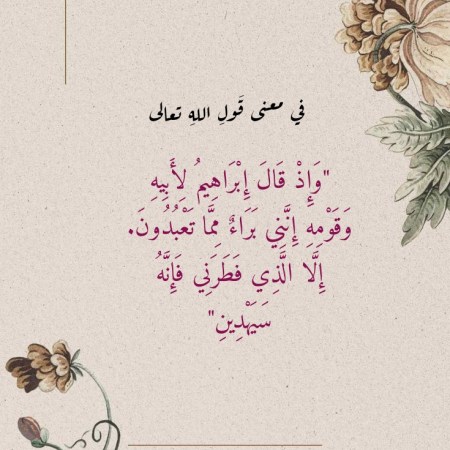 في معنى قَولِ اللهِ تعالى
"وَإِذْ قَالَ إِبْرَاهِيمُ لِأَبِيهِ
وَقَوْمِهِ إِنَّنِي بَرَاءٌ مِمَّا تَعْبُدُونَ.
إِلَّا الَّذِي فَطَرَنِي فَإِنَّهُ
سَيَهْدِينِ"